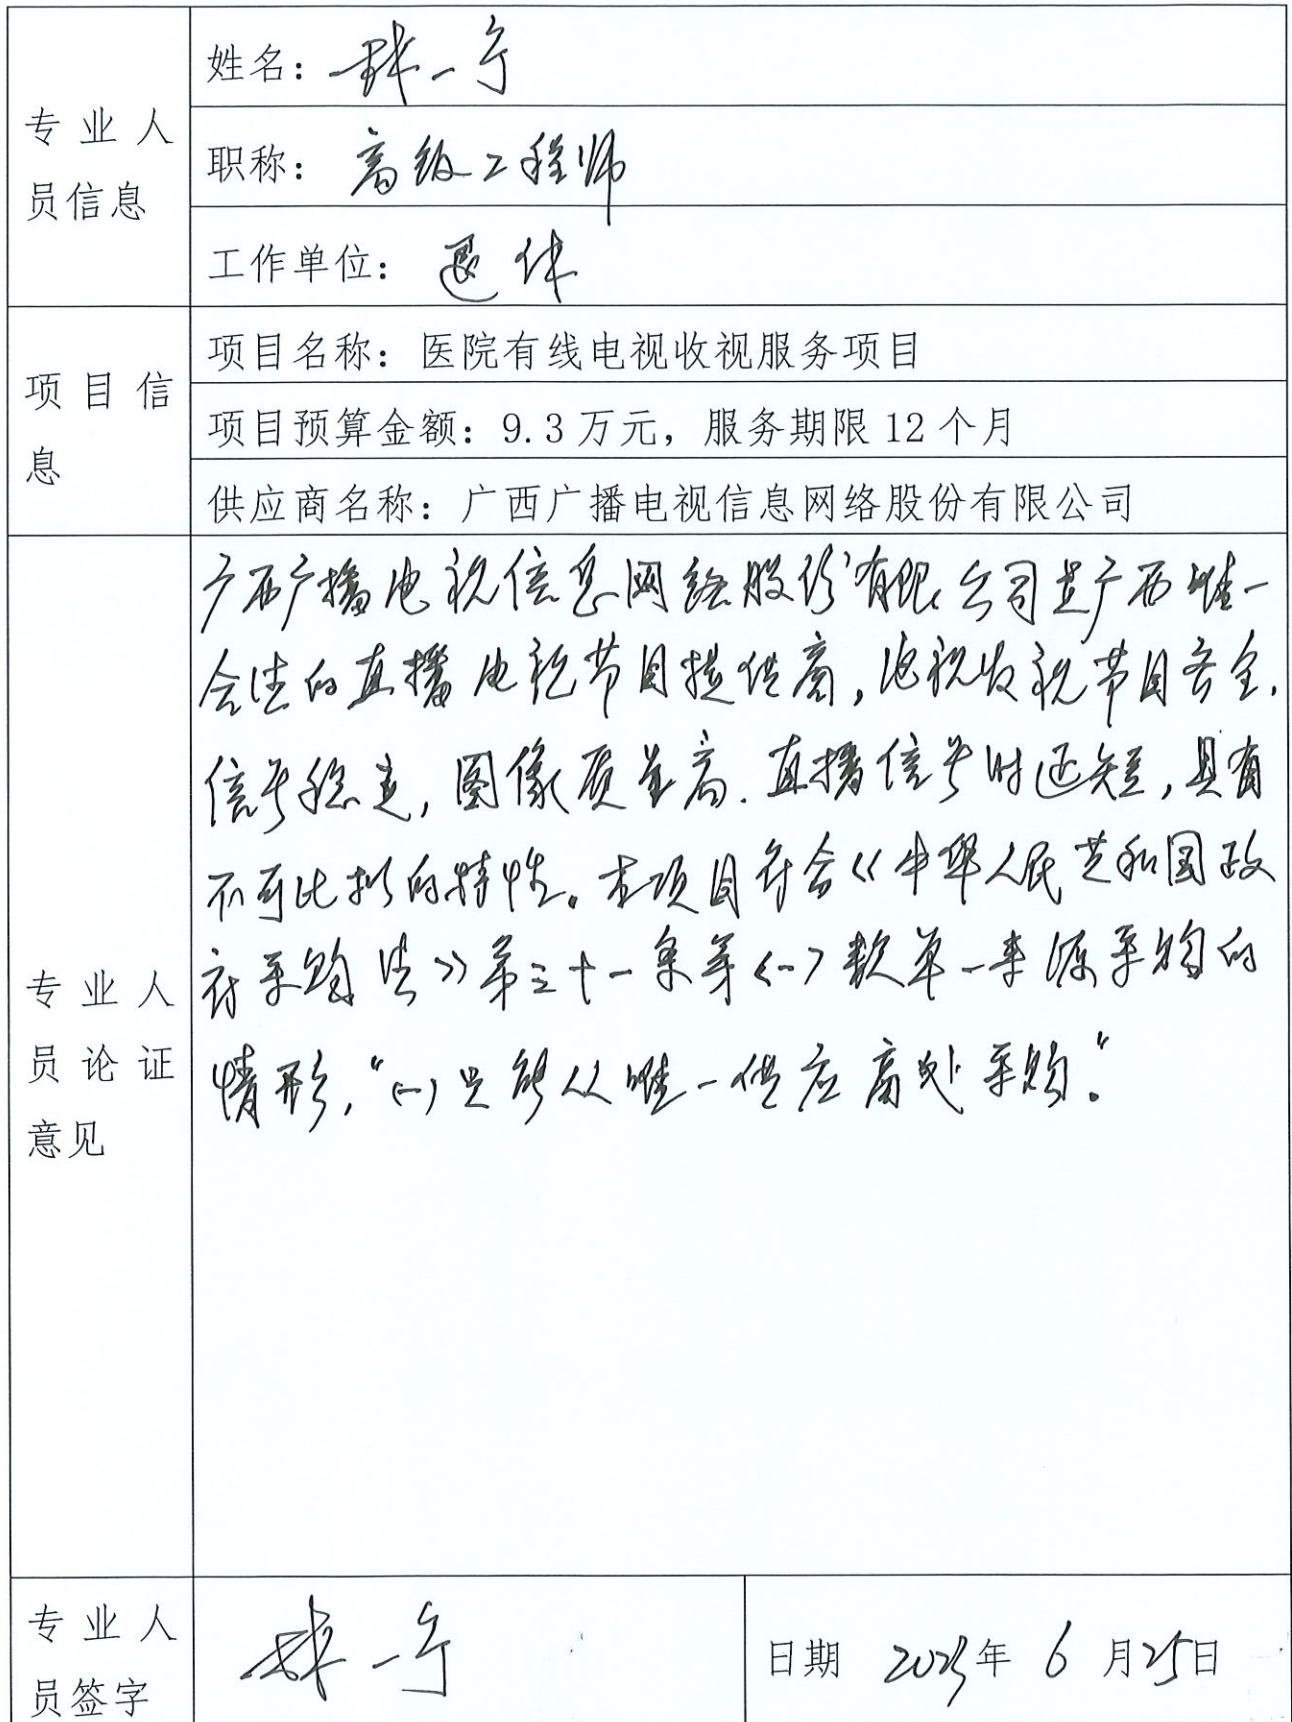 专业人员信息
姓名：一宁
职称：高级工程师
工作单位：退休
项目信息
项目名称：医院有线电视收视服务项目
项目预算金额：9.3万元，服务期限12个月
供应商名称：广西广播电视信息网络股份有限公司
专业人员论证意见
广西广播电视信息网络股份有限公司是广西唯一
合法的直播电视节目提供商，电视收视节目齐全，
信号稳定，图像质量高．直播信号时延短，具有
不可比拟的特性。本项目符合《中华人民共和国政
府采购法》第三十一条第（一）款单一来源采购的
情形，“(一)只能从唯一供应商处采购。”
专业人员签字
一宁
日期 年6月25日